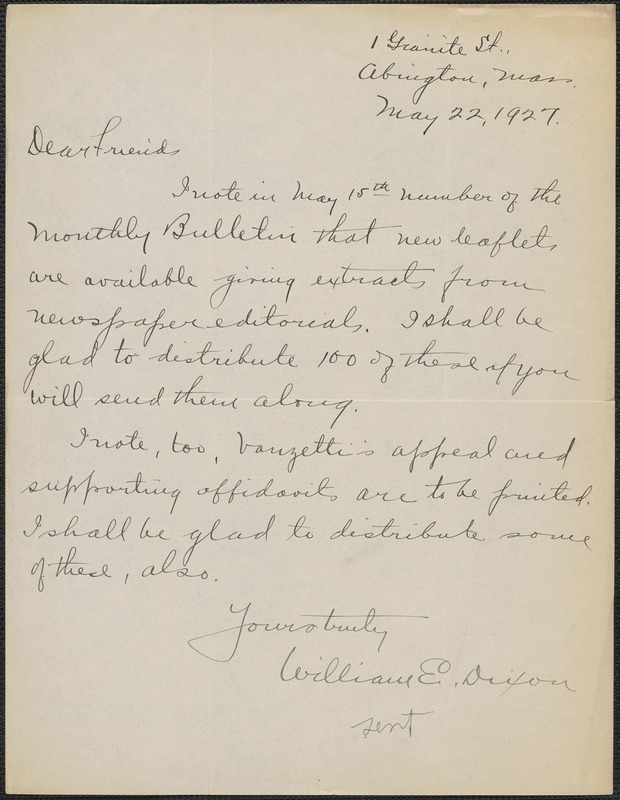 1 Granite St.,
Abington, Mass.
May 22, 1927.
Dear Friends
I note in May 15th number of the
Monthly Bulletin that new leaflets
are available giving extracts from
newspaper editorials. I shall be
glad to distribute 100 of these if you
will send them along.
I note, too, Vanzetti's appeal and
supporting affidavits are to be printed.
I shall be glad to distribute some
of these, also.
Yours truly
William E. Dixon
sent